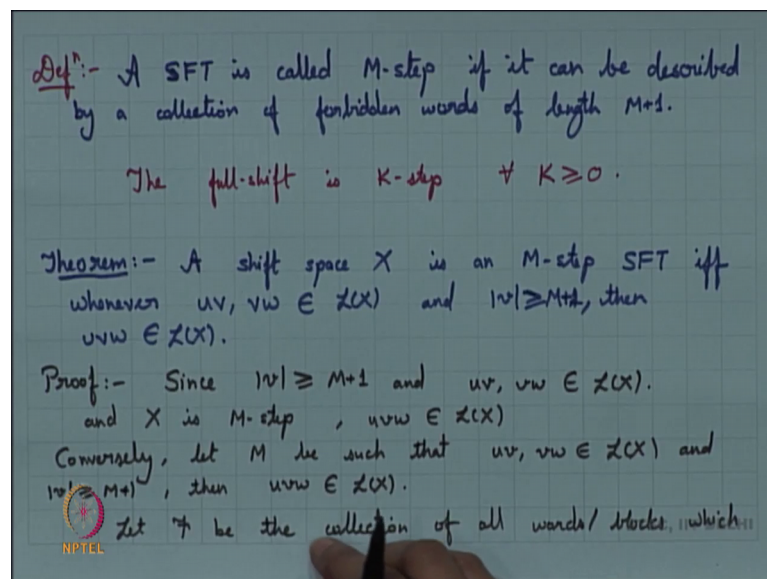 Defⁿ:- A SFT is called M-step if it can be described
by a collection of forbidden words of length M+1.
The full-shift is K-step ∀ K ≥ 0.
Theorem:- A shift space X is an M-step SFT iff
whenever uv, vw ∈ ℒ(X) and |v| ≥ M+1, then
uvw ∈ ℒ(X).
Proof:- Since |v| ≥ M+1 and uv, vw ∈ ℒ(X).
and X is M-step, uvw ∈ ℒ(X)
Conversely, let M be such that uv, vw ∈ ℒ(X) and
|v| ≥ M+1, then uvw ∈ ℒ(X).
Let be the collection of all words/ blocks which
NPTEL